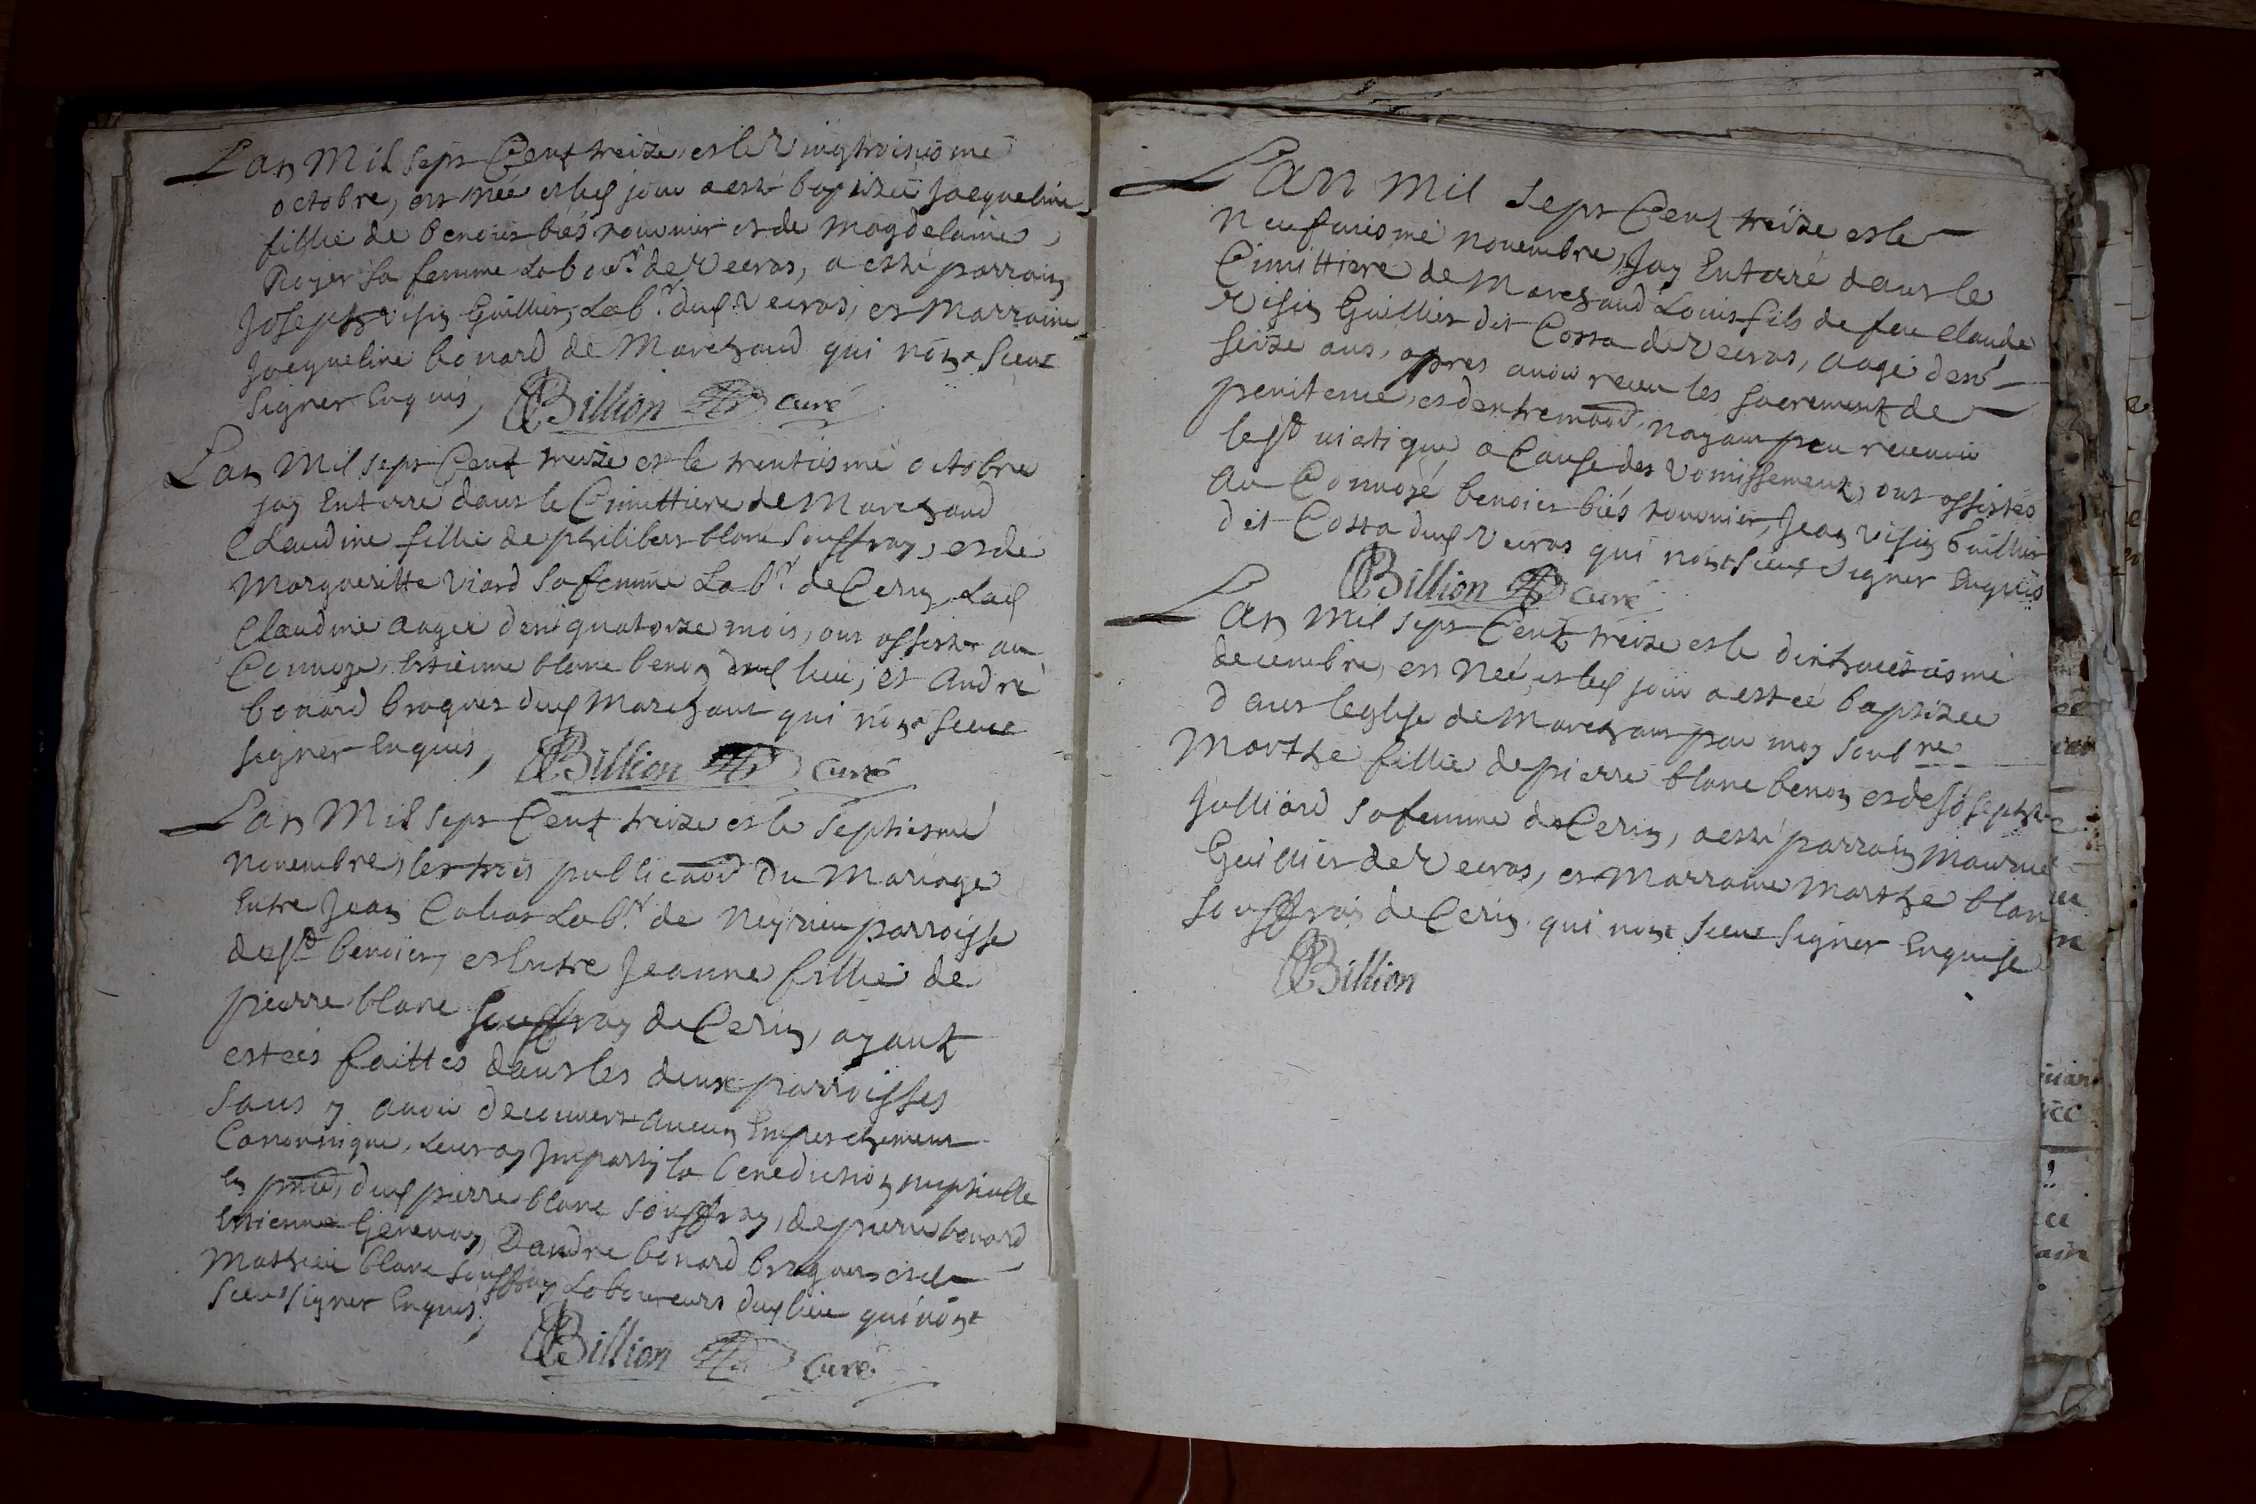 Lan Mil sept Cent treize, et le Vingtroisieme
octobre, est née et led jour a esté baptizée Jacqueline
fillie de benoist biés rouvnier et de Magdelaine
Royer sa femme Labour.r de Veeras, a esté parrain
Joseph visin Guillier, Lab.r dud Veeras, et Marraine
Jacqueline bonard de Marchand qui nont sceut
signer Enquis, Billion curé
Lan Mil sept Cent treize et le trentiesme octobre
jay Enterre dans le Cimittiere de Marchand
Claudine fillie de philibert blanc souffray, et de
Margueritte Viard sa femme Lab.r de Cerin, Lad
Claudine aagée denv quatorze mois, ont assister au
Convoye, Estienne blanc benon dud lieu, et André
bonard braquet dud Marchant qui nont sceut
signer Enquis, Billion Curé
Lan Mil sept Cent treize et le septiesme
Novembre, les trois publicaõns Du Mariage
Entre Jean Cohas Lab.r de Neyrieu parroisse
de st benoist, et Entre Jeanne fillie de
pierre blanc souffray de Cerin, ayant
estées faittes dans les deux parroisses
sans y avoir decouvert aucun Empeschement
Canonnique, Leur ay Imparty la benediction nuptialle
En pñce, dud pierre blanc souffray, de pierre bonard
Estienne Genevay, Dandre bonard braquet et de
Mathieu blanc souffray Laboureurs dud lieu qui nont
sceut signer Enquis, Billion Curé
Lan Mil sept Cent treize et le
Neufviesme novembre, Jay Enterré dans le
Cimittiere de Marchand Louis fils de feu Claude
visin Guillier dit Cossa de Veeras, aagé denv
seize ans, apres avoir receu les sacrement de
penitence, et dextremaõn, nayant peu recevoir
le st viatique a Cause des Vomissement, ont assistés
au Convoyé benoist biés rouvnier, Jean visin Guillier
dit Cossa dud Veeras qui nont sceut signer Enquis
Billion Curé
Lan Mil sept Cent treize et le dixhuictiesme
decembre, est Née, et led jour a estée baptizée
dans leglise de Marchant par moy soubne
Marthe fillie de pierre blanc benon et de Josephte
Julliard sa femme de Cerin, a esté parrain Maurice
Guillier de Veeras, et Marraine Marthe blan
souffray de Cerin qui nont sceut signer Enquise
Billion